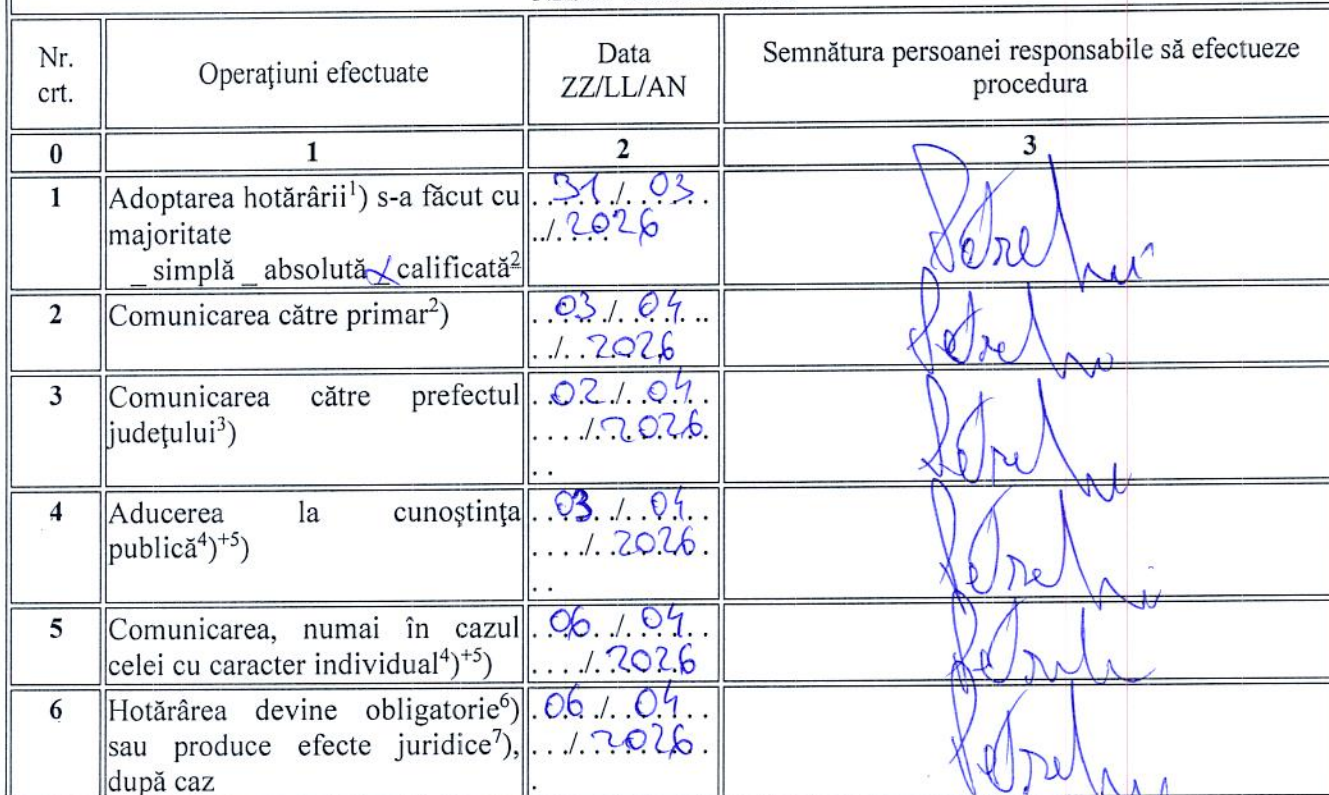 Nr.
crt.
Operaţiuni efectuate
Data
ZZ/LL/AN
Semnătura persoanei responsabile să efectueze
procedura
0
1
2
3
1
Adoptarea hotărârii¹) s-a făcut cu
majoritate
_ simplă _ absolută x calificată²
31/.03
../.2026
2
Comunicarea către primar²)
..03./..04...
../..2026
3
Comunicarea către prefectul
judeţului³)
..02./..04..
..../.2026.
..
4
Aducerea la cunoştinţa
publică⁴)⁺⁵)
..03../..04..
..../..2026.
..
5
Comunicarea, numai în cazul
celei cu caracter individual⁴)⁺⁵)
..06../..04..
..../.2026
6
Hotărârea devine obligatorie⁶)
sau produce efecte juridice⁷),
după caz
.06./..04..
.../.2026.
.